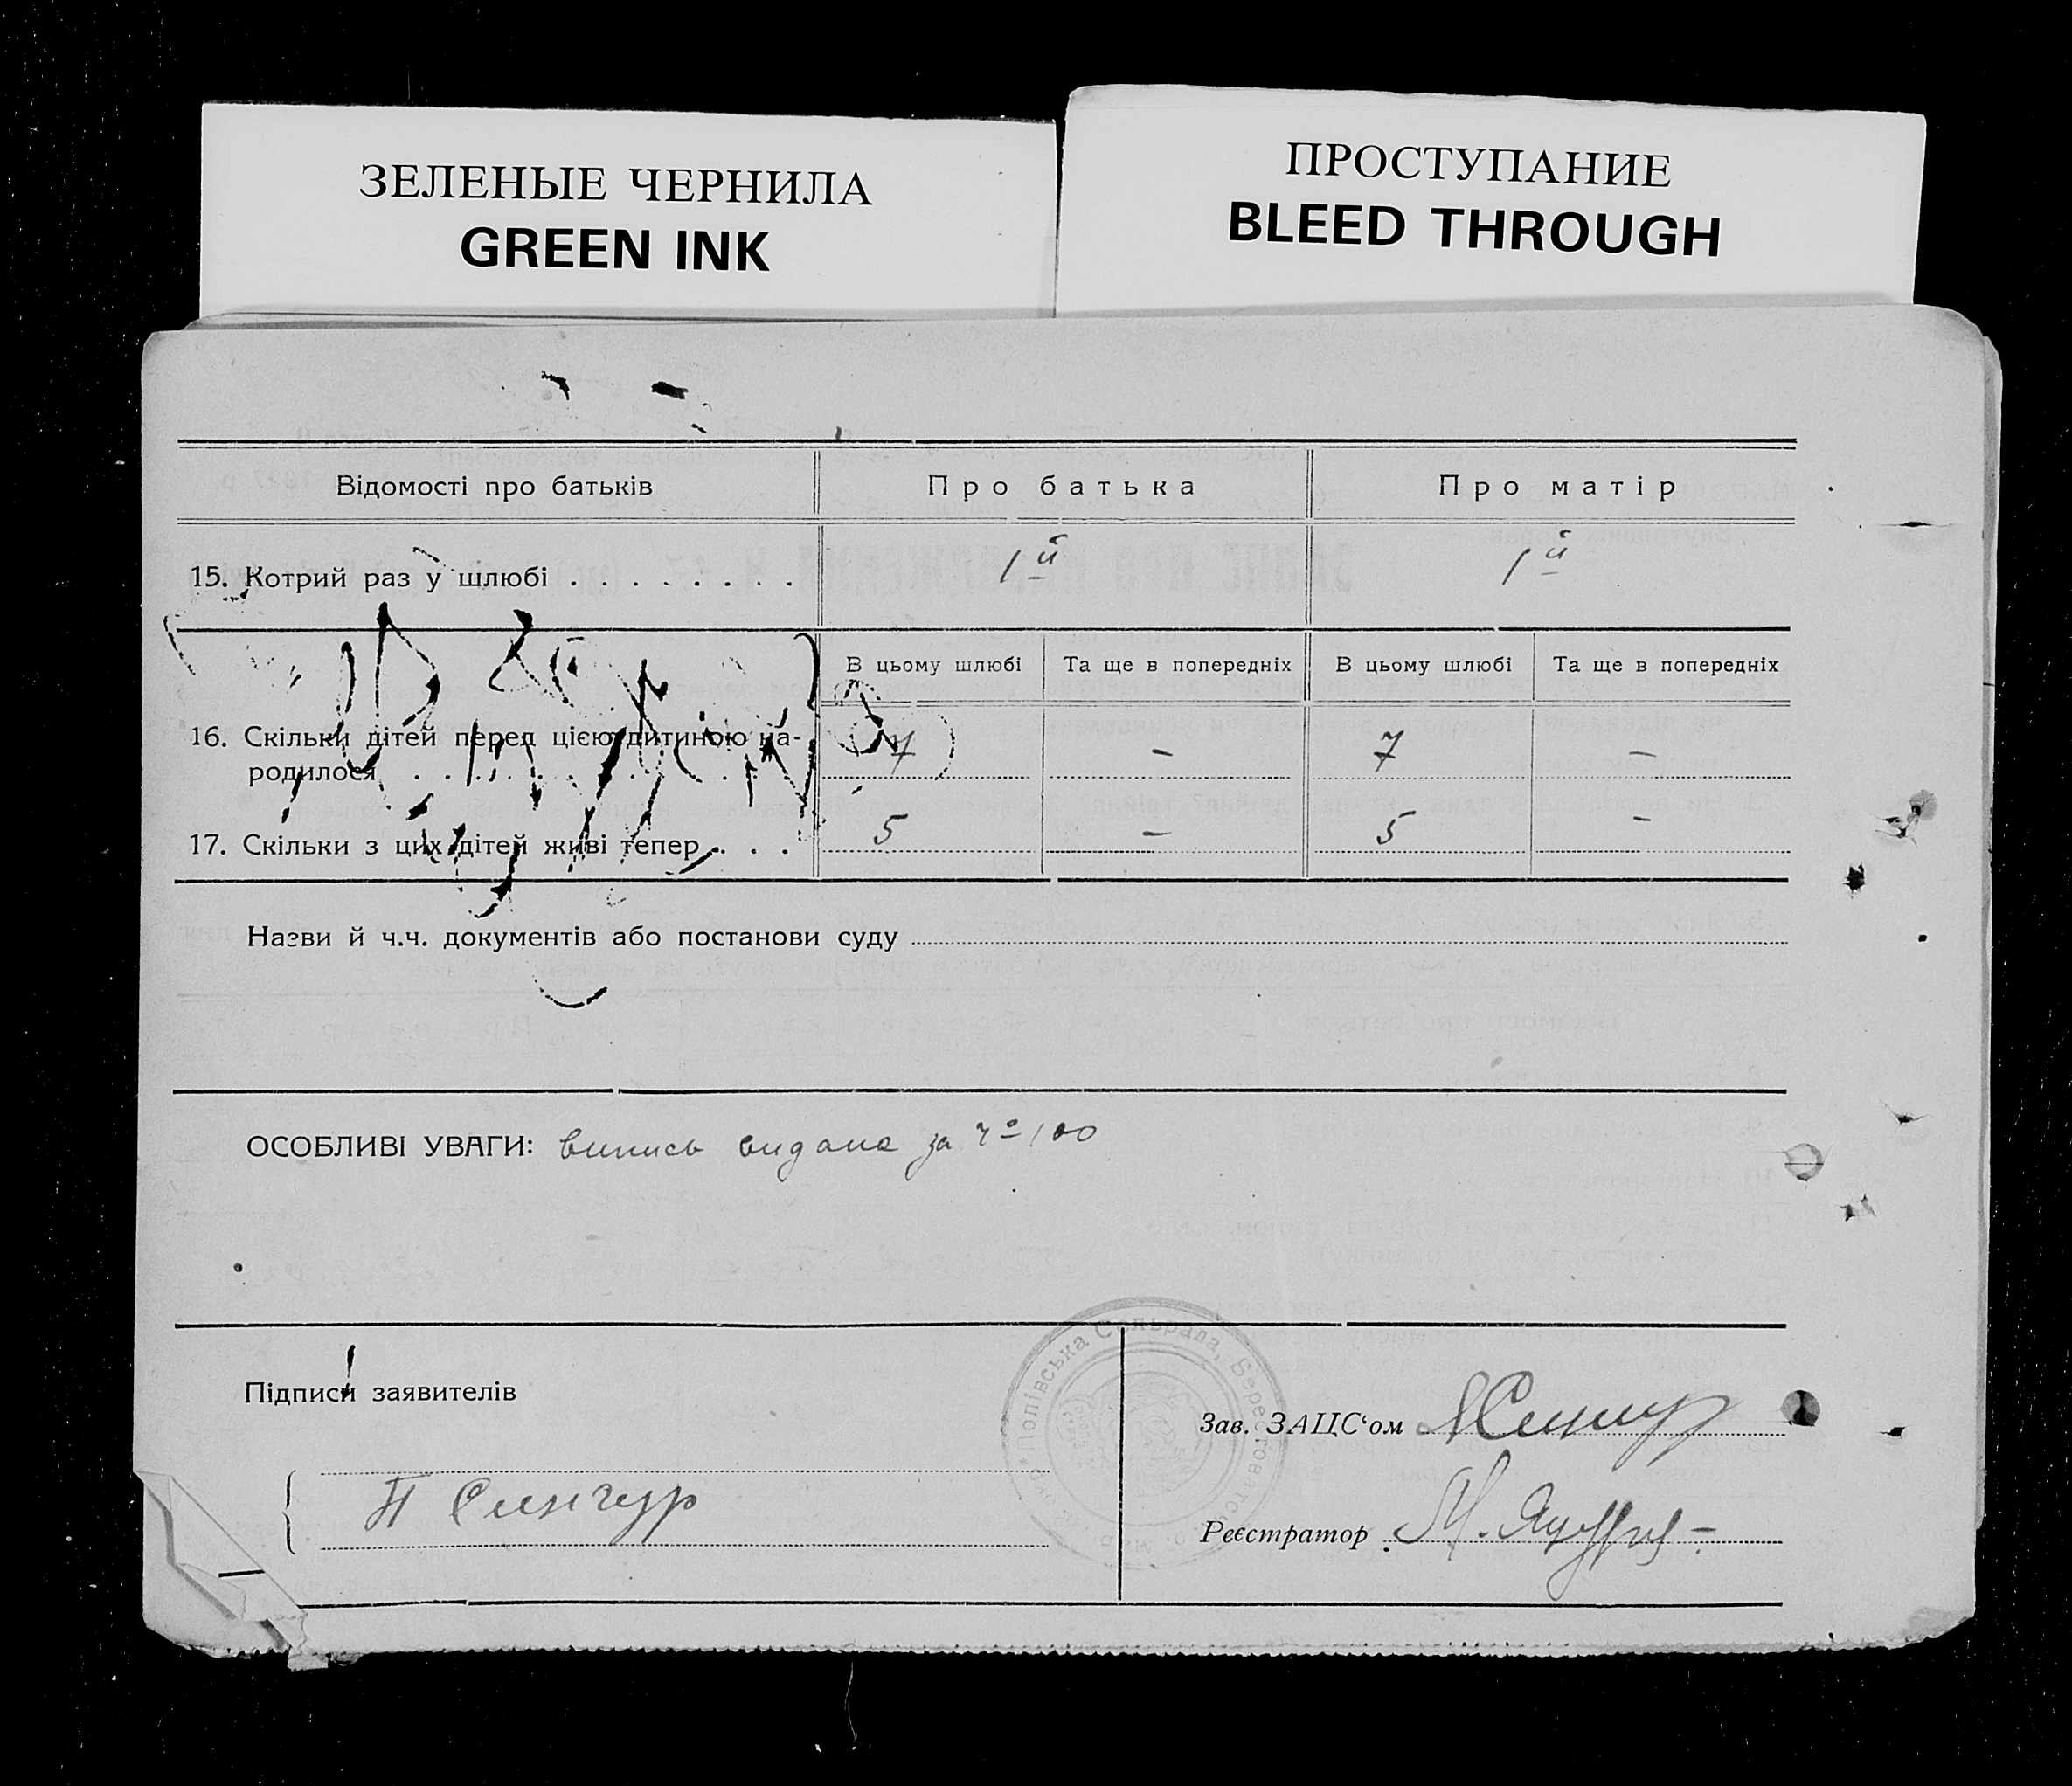 ЗЕЛЕНЫЕ ЧЕРНИЛА
GREEN INK
ПРОСТУПАНИЕ
BLEED THROUGH
Відомості про батьків Про батька Про матір
15. Котрий раз у шлюбі . . . . . . . . 1й 1й
В цьому шлюбі Та ще в попередніх В цьому шлюбі Та ще в попередніх
16. Скільки дітей перед цією дитиною на-
родилося 7 – 7 –
17. Скільки з цих дітей живі тепер . . . 5 – 5 –
Назви й ч.ч. документів або постанови суду
ОСОБЛИВІ УВАГИ: випись видана за ч° 100
Підписи заявителів
Зав. ЗАЦС‘ом
П Сингур
Реєстратор М.
Попівська Сельрада,